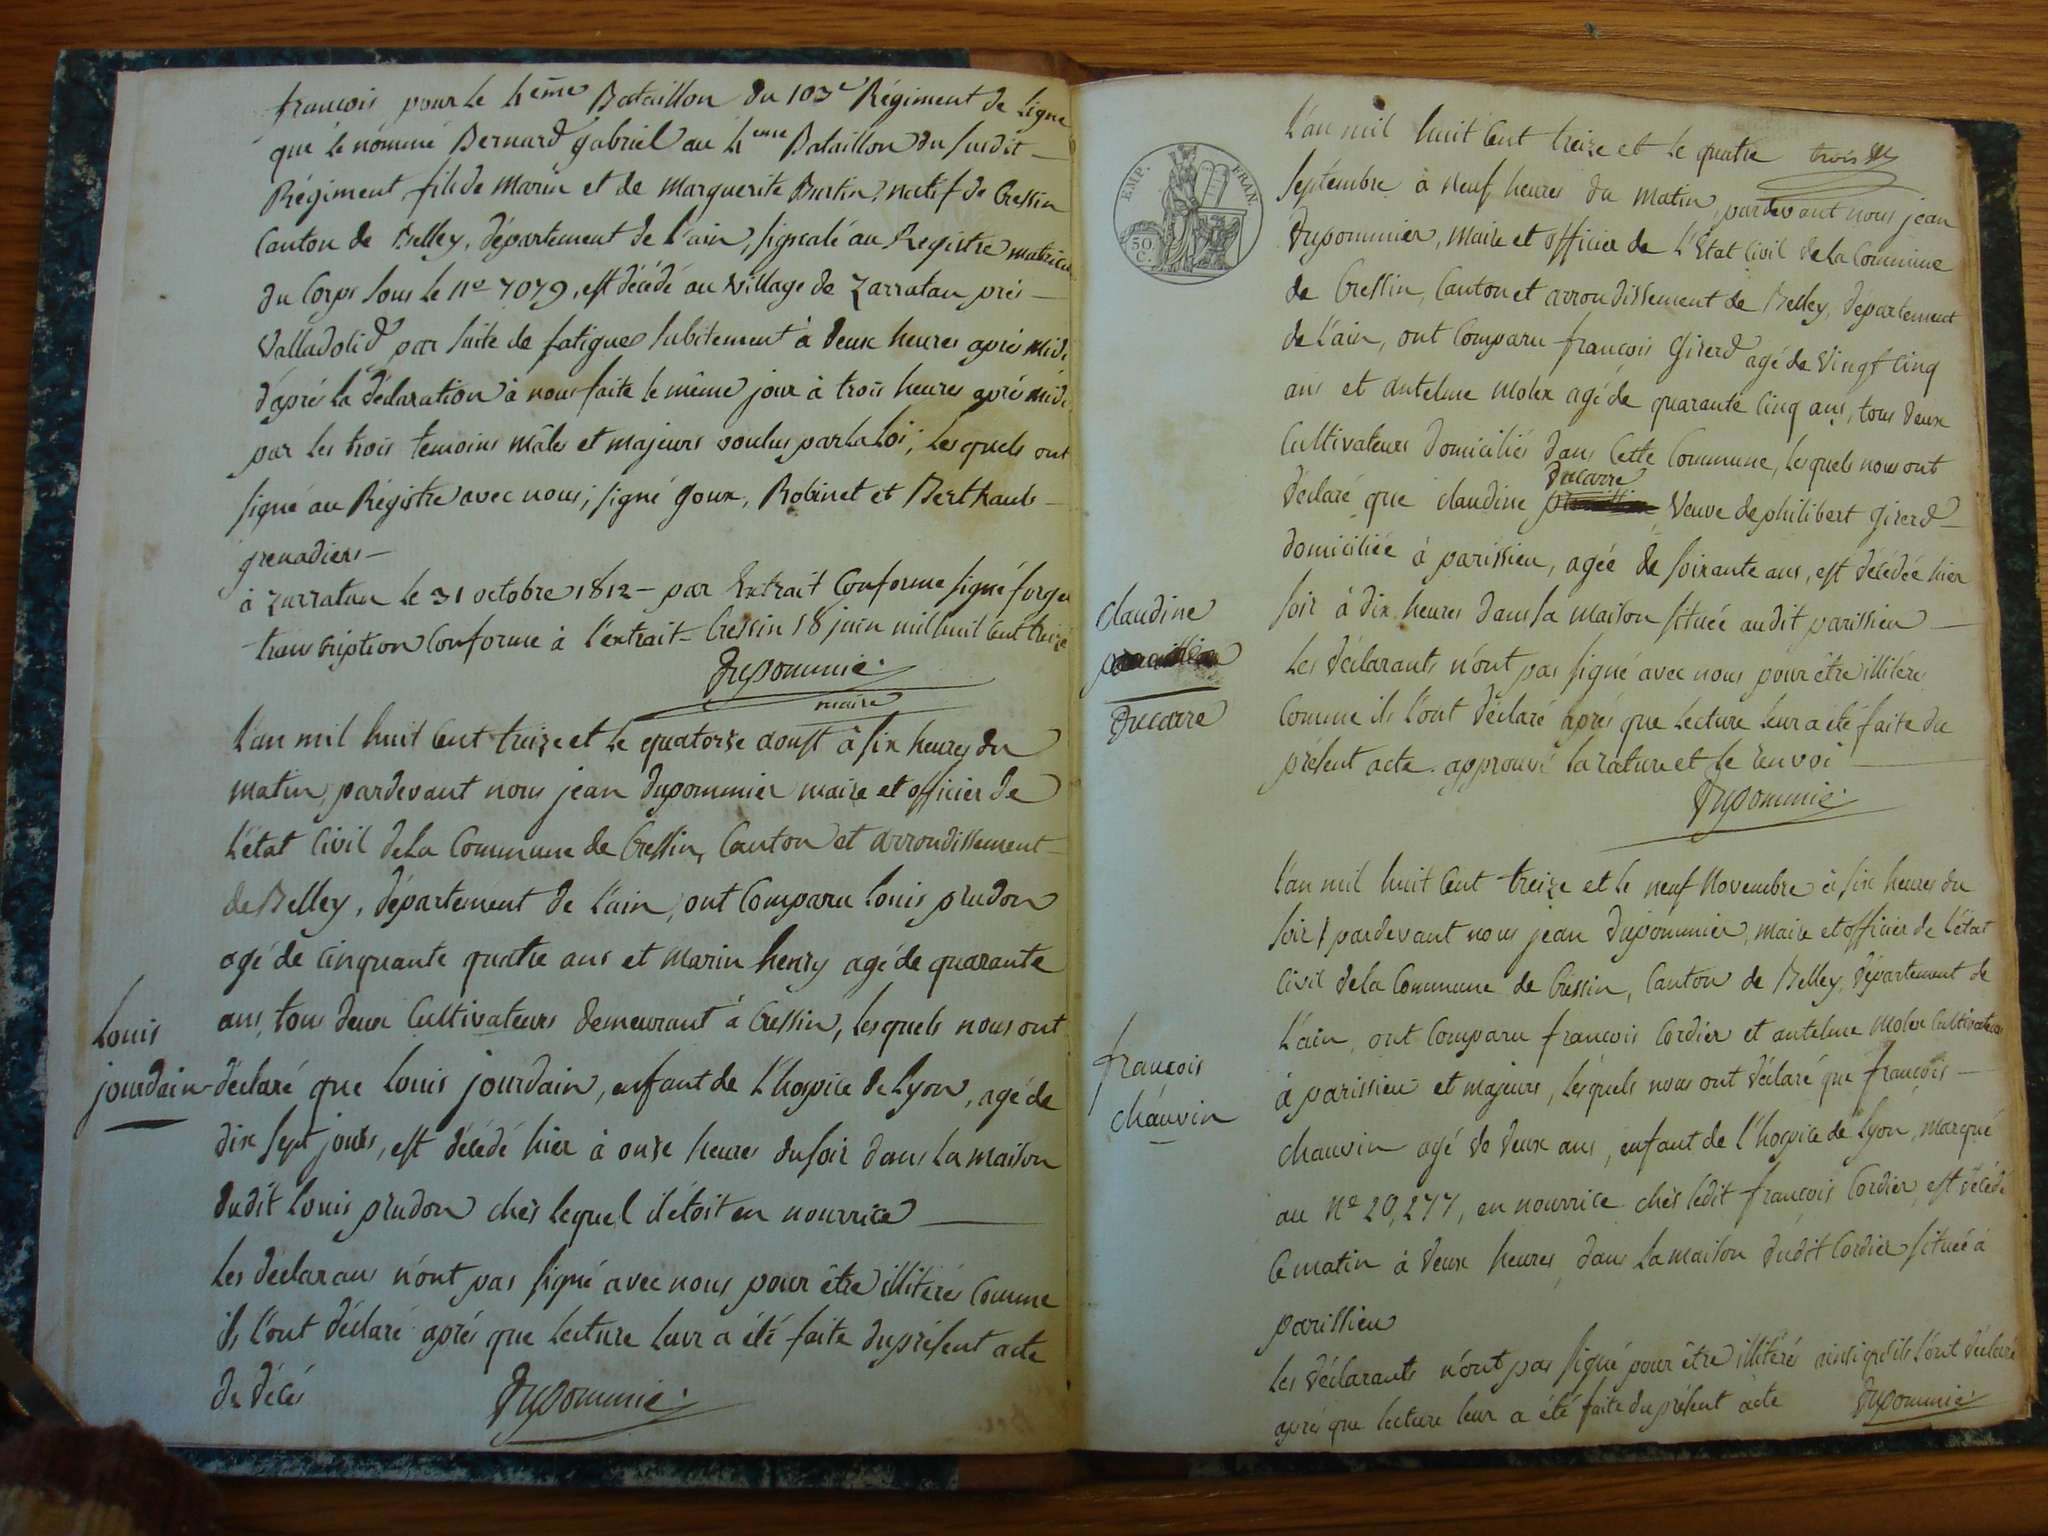 françois pour le 4ème Bataillon du 103e Régiment de Ligne
que le nommé Bernard gabriel au 4eme Bataillon du susdit
Régiment, fils de marin et de marguerite Burtin, natif de Cressin
Canton de Belley, département de l'ain, signalé au Registre matricule
du Corps sous le No 7079, est décédé au village de Zarratan près
Valladolid par suite de fatigues subitement à deux heures après midi
d'après la déclaration à nous faite le même jour à trois heures après midi
par les trois temoins mâles et majeurs voulus par la loi, lesquels ont
signé au Régistre avec nous; signé goux, Robinet et
grenadiers
à zarratan le 31 octobre 1812 - par Extrait Conforme signé
transcription Conforme à l'extrait - Cressin 18 juin mil huit Cent treize
Dupommié
maire
L'an mil huit Cent treize et le quatorze aoust à six heures du
matin, pardevant nous jean Dupommier maire et officier de
L'état Civil de La Commune de Cressin, Canton et arrondissement
de Belley, département de l'ain, ont Comparu Louis prudon
agé de cinquante quatre ans et marin henry agé de quarante
ans, tous deux Cultivateurs demeurant à Cressin, lesquels nous ont
Louis
jourdain
déclaré que Louis jourdain, enfant de l'hospice de Lyon, agé de
dix sept jours, est décédé hier à onze heures du soir dans la maison
dudit Louis prudon chès lequel il étoit en nourrice
Les déclarans n'ont pas signé avec nous pour être illitérés Comme
ils l'ont déclaré après que Lecture leur a été faite du présent acte
de décés
Dupommié
EMP. FRAN.
50 C.
L'an mil huit Cent treize et le quatre
trois
septembre à neuf heures du matin, pardevant nous jean
Dupommier, maire et officier de l'Etat Civil de la Commune
de Cressin, Canton et arrondissement de Belley, département
de l'ain, ont Comparu françois Girerd agé de vingt cinq
ans et antelme molex agé de quarante cinq ans, tous deux
Cultivateurs domiciliés dans Cette Commune, lesquels nous ont
Ducarre
déclaré que claudine veuve de philibert Girerd
domiciliée à parissieu, agée de soixante ans, est décédée hier
soir à dix heures dans sa maison située audit parissieu
claudine
Ducarre
Les déclarants n'ont pas signé avec nous pour être illitérés
Comme ils l'ont déclaré après que Lecture leur a été faite du
présent acte. approuvé la rature et le renvoi
Dupommié
L'an mil huit Cent treize et le neuf Novembre à six heures du
soir, pardevant nous jean Dupommier, maire et officier de l'état
Civil de la Commune de Cressin, Canton de Belley, département de
L'ain, ont Comparu françois Cordier et antelme Molex Cultivateurs
françois
chauvin
à parissieu et majeurs, lesquels nous ont déclaré que françois
chauvin agé de deux ans, enfant de l'hospice de Lyon, marqué
au No 20,277, en nourrice chès ledit françois Cordier, est décédé
Ce matin à deux heures dans la maison dudit Cordier située à
parissieu
Les déclarants n'ont pas signé pour être illitérés ainsi qu'ils l'ont déclaré
après que lecture leur a été faite du présent acte
Dupommié